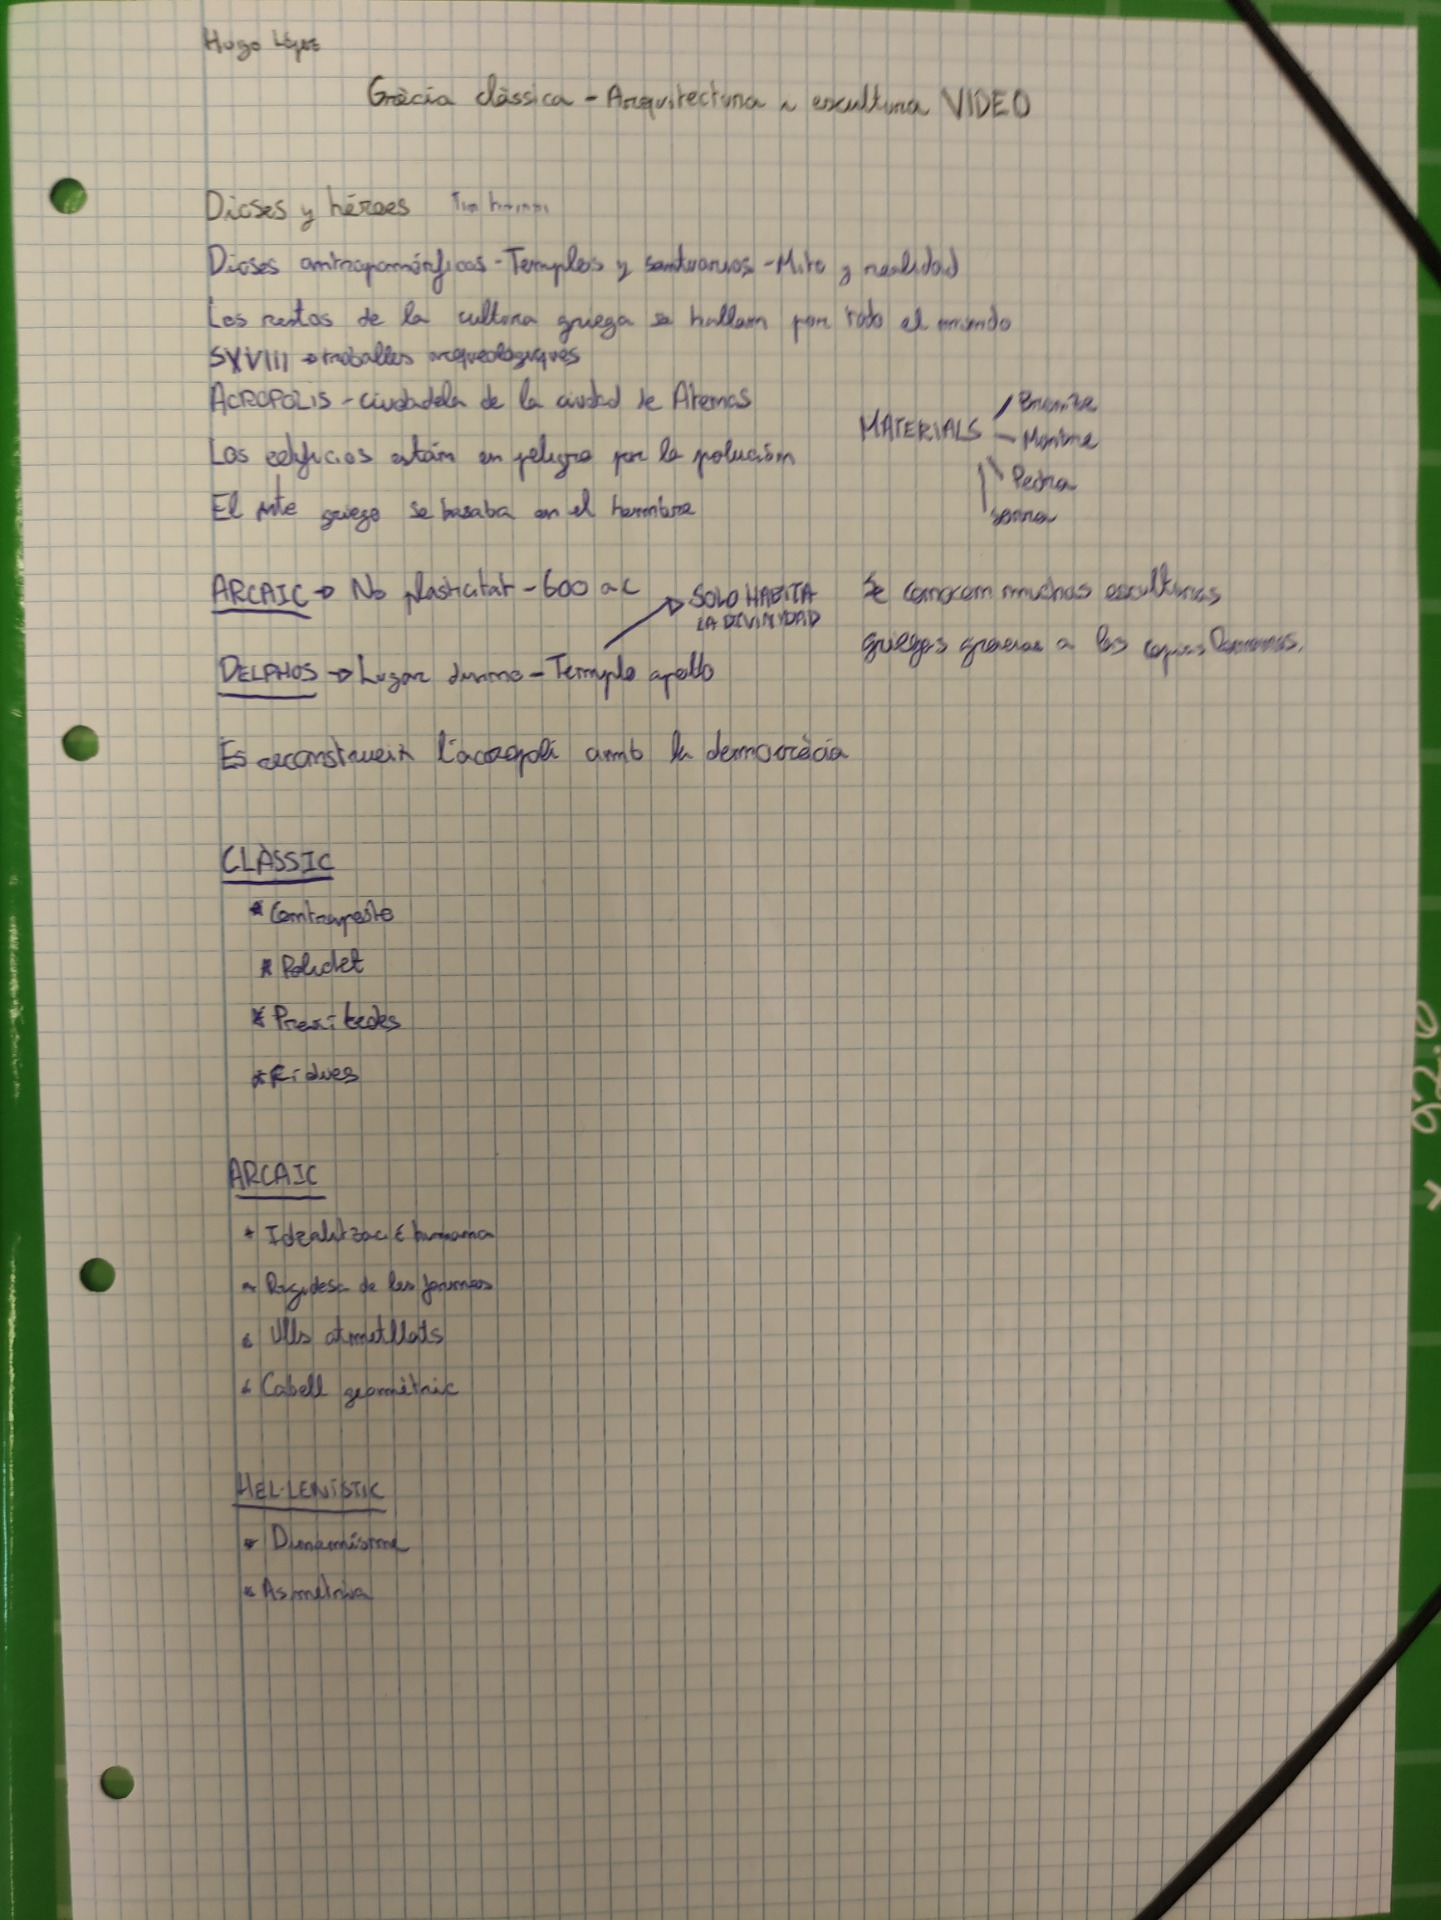 Hugo López
Grècia clàssica - Arquitectura i escultura VIDEO
Dioses y héroes
Dioses antropomórficos - Templos y santuarios - Mito y realidad
Los restos de la cultura griega se hallan por todo el mundo
SXVIII → troballes arqueològiques
ACROPOLIS - ciudadela de la ciudad de Atenas
Los edificios están en peligro por la polución
El arte griego se basaba en el hombre
MATERIALS
Bronze
Marbre
Pedra
sorra
ARCAIC → No plasticitat - 600 a C
SOLO HABITA
LA DIVINIDAD
DELPHOS → Lugar divino - Templo apollo
Se conocen muchas esculturas
griegas gracias a las copias Romanas.
Es reconstrueix l'acropoli amb la democràcia
CLÀSSIC
* Contraposto
* Policlet
* Praxíteles
* Fídies
ARCAIC
* Idealització humana
* Rigidesa de les formes
* Ulls atmetllats
* Cabell geomètric
HEL·LENÍSTIC
* Dinamisme
* Asimetria